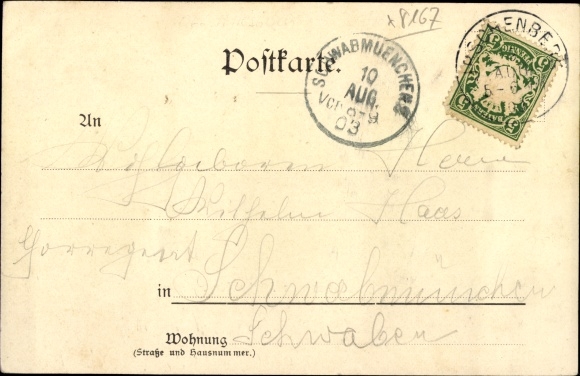 x 8167
Postkarte.
SCHWABMUENCHEN
10
AUG.
Vor 8-9
03
BAYERN
5
An
Wohlgeboren Herrn
Wilhelm Haas
Chorregent
in Schwabmünchen
Wohnung Schwaben
(Straße und Hausnummer.)